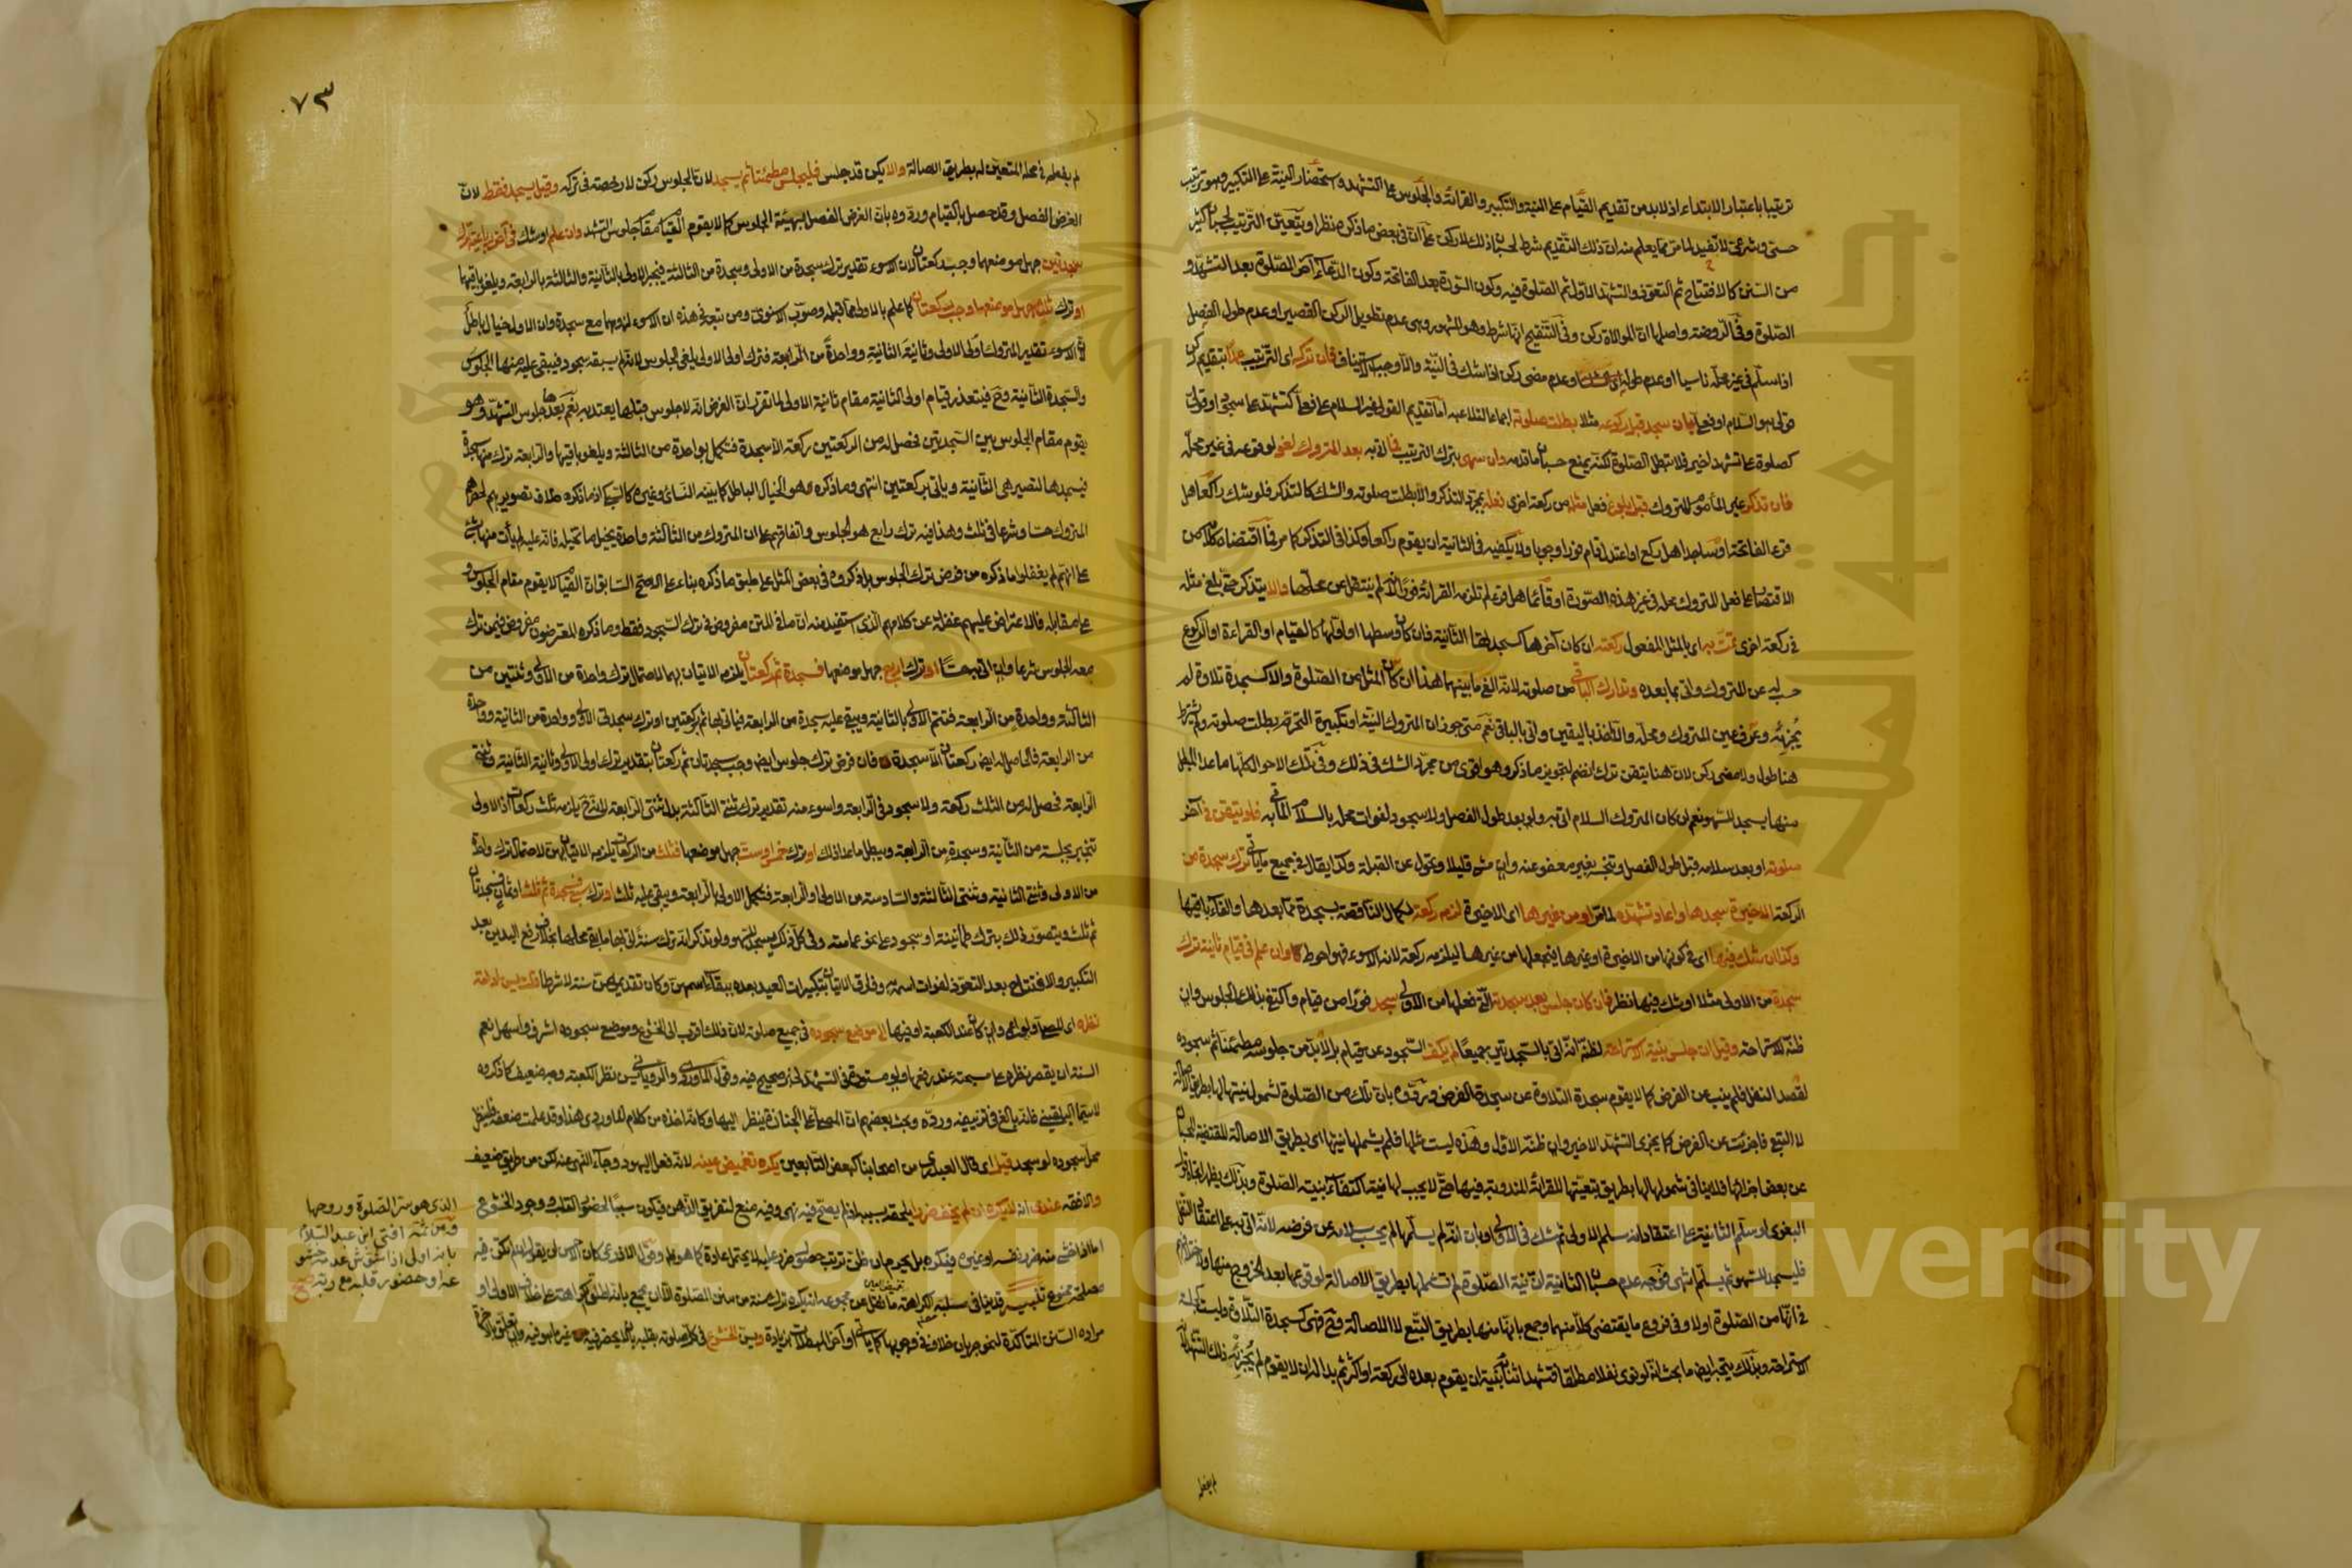 ترتيبا باعتبار الابتداء اذ لابد من تقديم القيام على النية والتكبير والقرائة والجلوس على التشهد واستحضار النية على التكبير وهو ترتيب
حسى وشرعى لا تفيد لما مر مما يعلم منه ان ذلك التقديم شرط لحسبان ذلك لاركن على ان فى بعض ما ذكره نظرا ويتعين الترتيب لحسبان كثير
من السنن كالافتتاح ثم التعوذ والتشهد الاول ثم الصلوة فيه وكون السورة بعد الفاتحة وكون الدعاء آخر الصلوة بعد التشهد و
الصلوة وفى الروضة واصلها ان الموالاة ركن وفى التنقيح انها شرط وهو المشهور وهى عدم تطويل الركن القصير او عدم طول الفصل
اذا سلم فى غير محله ناسيا او عدم طوله او عدم مضى ركن اذا شك فى النية والاوجب الاستيناف فان تركه اى الترتيب عمدا بتقديم ركن
قولى هو السلام او فعلى بان سجد قبل ركوعه مثلا بطلت صلوته اجماعا لتلاعبه اما تقديم القولى غير السلام على فعلى كتشهد على سجود او قولى
كصلوة على تشهد اخير فلا تبطل الصلوة لكنه يمنع حسبان ما قدمه وان سهى بترك الترتيب فما اتى به بعد المتروك لغو لوقوعه فى غير محله
فان تذكر غير المأموم المتروك قبل بلوغ فعل مثله من ركعة اخرى فعله بمجرد التذكر والا بطلت صلوته والشك كالتذكر فلو شك راكعا هل
قرء الفاتحة او ساجدا هل ركع او اعتدل قام فورا وجوبا ولا يكفيه فى الثانية ان يقوم راكعا وكذا فى التذكر كما مر فما اقتضاه كلام من
الاقتصار على فعل المتروك محله فى غير هذه الصورة او قائما هل قرء لم تلزمه القرائة فورا لانه لم ينتقل عن محلها والا يتذكر حتى بلغ مثله
فى ركعة اخرى تمت به اى بالمثل المفعول ركعته ان كان آخرها كسجدتها الثانية فان كان وسطها او اولها كالقيام او القراءة او الركوع
حسب له عن المتروك واتى بما بعده وتدارك الباقى من صلوته لانه الغى ما بينهما هذا ان كان المثل من الصلوة والا كسجدة تلاوة لم
يجزئه وعرف عين المتروك ومحله والا اخذ باليقين واتى بالباقى نعم متى جوز ان المتروك النية او تكبيرة التحرم بطلت صلوته ولم يشترط
هنا طول ولا مضى ركن لان هنا تيقن ترك انضم لتجويز ما ذكر وهو اقوى من مجرد الشك فى ذلك وفى تلك الاحوال كلها ما عدا المبطل
منها يسجد للسهو نعم ان كان المتروك السلام اتى به ولو بعد طول الفصل ولا سجود لفوات محله بالسلام المأتى به فلو تيقن فى آخر
صلوته او بعد سلامه قبل طول الفصل وتنجسه بغير معفو عنه وان مشى قليلا وتحول عن القبلة وكذا يقال فى جميع ما ياتى ترك سجدة من
الركعة الاخيرة سجدها واعاد تشهده لما مر او من غيرها اى الاخيرة لزمه ركعة لكمال الناقصة بسجدة مما بعدها والغاء باقيها
وكذا ان شك فيها اى فى كونها من الاخيرة او غيرها فيجعلها من غيرها ليلزمه ركعة لانه الاسوء فهو احوط كما وان علم فى قيام ثانية ترك
سجدة من الاولى مثلا او شك فيها نظر فان كان جلس بعد سجدته التى فعلها من الاولى سجد فورا من قيام واكتفى بذلك الجلوس وان
ظنه للاستراحة وقيل ان جلس بنية الاستراحة لظنه انه اتى بالسجدتين جميعا لم يكف السجود عن قيام بل لابد من جلوسه مطمئنا ثم سجوده
لقصد النفل فلم ينب عن الفرض كما لا يقوم سجدة التلاوة عن سجدة الفرض وردوه بان تلك من الصلوة لشمول نيتها لها بطريق الاصالة
لا التبع فاجزئت عن الفرض كما يجزى التشهد الاخير وان ظنه الاول وهذه ليست مثلها فلم يشملها نيتها اى بطريق الاصالة المقتضية للحسبان
عن بعض اجزائها فلا ينافى شمولها لها بطريق تبعيتها للقرائة المندوبة فيها حتى لا يجب لها نية اكتفاء بنية الصلوة وبذلك يظهر اتجاه قول
البغوى لو سلم الثانية على اعتقاد انه سلم الاولى ثم شك فى الاولى او بان انه لم يسلمها لم يحسب سلامه عن فرضه لانه اتى به على اعتقاد النفل
فليسجد للسهو ثم يسلم انتهى فوجه عدم حسبان الثانية ان نية الصلوة لم تشملها بطريق الاصالة لوقوعها بعد الخروج منها واختلافهم
فى انها من الصلوة اولا وفى فروع ما يقتضى كلا منهما وجمع بانها منها بطريق التبع لا الاصالة وح فهى كسجدة التلاوة وليست كجلسة
الاستراحة وبذلك يتجه ايضا ما بحث انه لو نوى نفلا مطلقا فتشهد اثناءه بنية ان يقوم بعده الى ركعة او اكثر ثم بدا له ان لا يقوم لم يجزئه ذلك التشهد لانه
لم يفعله
٧٣
لم يفعله فى محله المتعين له بطريق الاصالة والا يكن قد جلس فليجلس مطمئنا ثم يسجد لان الجلوس ركن لا رخصة فى تركه وقيل يسجد فقط لان
الغرض الفصل وقد حصل بالقيام وردوه بان الغرض الفصل بهيئة الجلوس كما لا يقوم القيام مقام جلوس التشهد وان علم او شك فى آخر رباعية ترك
سجدتين جهل موضعهما وجب ركعتان لان الاسوء تقدير ترك سجدة من الاولى وسجدة من الثالثة فيجبر الاولى بالثانية والثالثة بالرابعة ويلغو باقيهما
او ترك ثلث جهل موضعها وجب ركعتان كما علم بالاولى مما قبله وصوب الاسنوى ومن تبعه فى هذه ان الاسوء لزومهما مع سجدة وان الاول خيال باطل
لان الاسوء تقدير المتروك اولى الاولى وثانية الثانية وواحدة من الرابعة فترك اولى الاولى يلغى الجلوس لانه لم يسبقه سجود فيبقى عليه منها الجلوس
والسجدة الثانية وح فيتعذر قيام اولى الثانية مقام ثانية الاولى لما تقرر ان الفرض انه لا جلوس قبلها يعتد به نعم بعدها جلوس التشهد وهو
يقوم مقام الجلوس بين السجدتين فحصل له من الركعتين ركعة الا سجدة فتكمل بواحدة من الثالثة ويلغو باقيها والرابعة ترك منها سجدة
فيسجدها لتصير هى الثانية وياتى بركعتين انتهى وما ذكره هو الخيال الباطل كما بينه النسائى وغيره كالسبكى اذ ما ذكروه خلاف تصويرهم لحصرهم
المتروك حسا وشرعا فى ثلث وهذا فيه ترك رابع هو الجلوس واتفاقهم على ان المتروك من الثالثة واحدة يحيل ما تخيله فانه عليه لم يأت منها بشئ
على انهم لم يغفلوا ما ذكروه من فرض ترك الجلوس بل ذكروه فى بعض المثل على طبق ما ذكره بناء على الاصح السابق ان القيام لا يقوم مقام الجلوس و
على مقابله فالاعتراض عليهم غفلة عن كلامهم الذى استفيد منه ان ما فى المتن مفروض فى ترك السجود فقط وما ذكره المعترضون مفروض فيمن ترك
معه الجلوس شرعا وان اتى به حسا او ترك اربع جهل موضعها فسجدة ثم ركعتان يلزمه الاتيان بهما لاحتمال ترك واحدة من الاولى وثنتين من
الثالثة وواحدة من الرابعة فتتم الاولى بالثانية ويبقى عليه سجدة من الرابعة فياتى بها ثم بركعتين او ترك سجدتى الاولى وواحدة من الثانية وواحدة
من الرابعة فالحاصل له ايضا ركعتان الا سجدة فان فرض ترك جلوس ايضا وجب سجدتان ثم ركعتان بتقدير ترك اولى الاولى وثانية الثانية وثنتى
الرابعة فحصل له من الثلث ركعة ولا سجود فى الرابعة واسوء منه تقدير ترك ثنتى الثالثة بدل ثنتى الرابعة لانه ح يلزمه ثلث ركعات اذ الاولى
تنجبر بجلسة من الثانية وسجدة من الرابعة ويبطل ما عدا ذلك او ترك خمس او ست جهل موضعها فثلث من الركعات يلزمه الاتيان بهن لاحتمال ترك واحدة
من الاولى وثنتى الثانية وثنتى الثالثة والسادسة من الاولى او الرابعة فتكمل الاولى بالرابعة ويبقى عليه ثلث او ترك سبع فسجدة ثم ثلث او ثمان فسجدتان
ثم ثلث ويتصور ذلك بترك طمأنينة او سجود على نحو عمامته وفى كل ذلك يسجد للسهو ولو تذكر انه ترك سنة اتى بها ما بقى محلها بخلاف رفع اليدين بعد
التكبير والافتتاح بعد التعوذ لفوات اسمه وفارق الاتيان بتكبيرات العيد بعده ببقاء اسمهن وكان تقديمهن سنة لا شرطا قلت يسن ادامة
نظره اى المصلى ولو اعمى وان كان عند الكعبة او فيها الى موضع سجوده فى جميع صلوته لان ذلك اقرب الى الخشوع وموضع سجوده اشرف واسهل نعم
السنة ان يقصر نظره على مسبحته عند رفعها ولو مستورة فى التشهد لخبر صحيح فيه وقول الماوردى والرويانى يسن نظر الكعبة وجه ضعيف كما ذكروه
لاسيما البلقينى فانه بالغ فى تزييفه ورده وبحث بعضهم ان المصلى على الجنازة ينظر اليها وكانه اخذه من كلام الماوردى هذا وقد علمت ضعفه فلينظر
محل سجوده لو سجد قيل اى قال العبدرى من اصحابنا كبعض التابعين يكره تغميض عينه لانه فعل اليهود وجاء النهى عنه لكن من طريق ضعيف
والافقه عندى انه لا يكره ان لم يخف ضررا يلحقه بسببه اذ لم يصح فيه نهى وفيه منع لتفريق الذهن فيكون سببا لحضور القلب ووجود الخشوع
الذى هو سر الصلوة وروحها
ومن ثمة افتى ابن عبد السلام
بانه اولى اذا شوش عدمه خشو
عه او حضور قلبه مع ربه صح
اما اذا خشى منه ضرر نفسه او غيره فيكره بل يحرم ان ظن ترتب حصول ضرر عليه لا يحتمل عادة كما هو ظاهر وقول الاذرعى كان الاحسن ان يقول ان لم تكن فيه
مراده السنن المتاكدة لنحو جريان خلاف فى وجوبها كما ياتى او آخر المبطلات بزيادة ويسن الخشوع فى كل صلوته بقلبه بان لا يحضر فيه غير ما هو فيه وان تعلق بالاخرة
Copyright © King Saud University